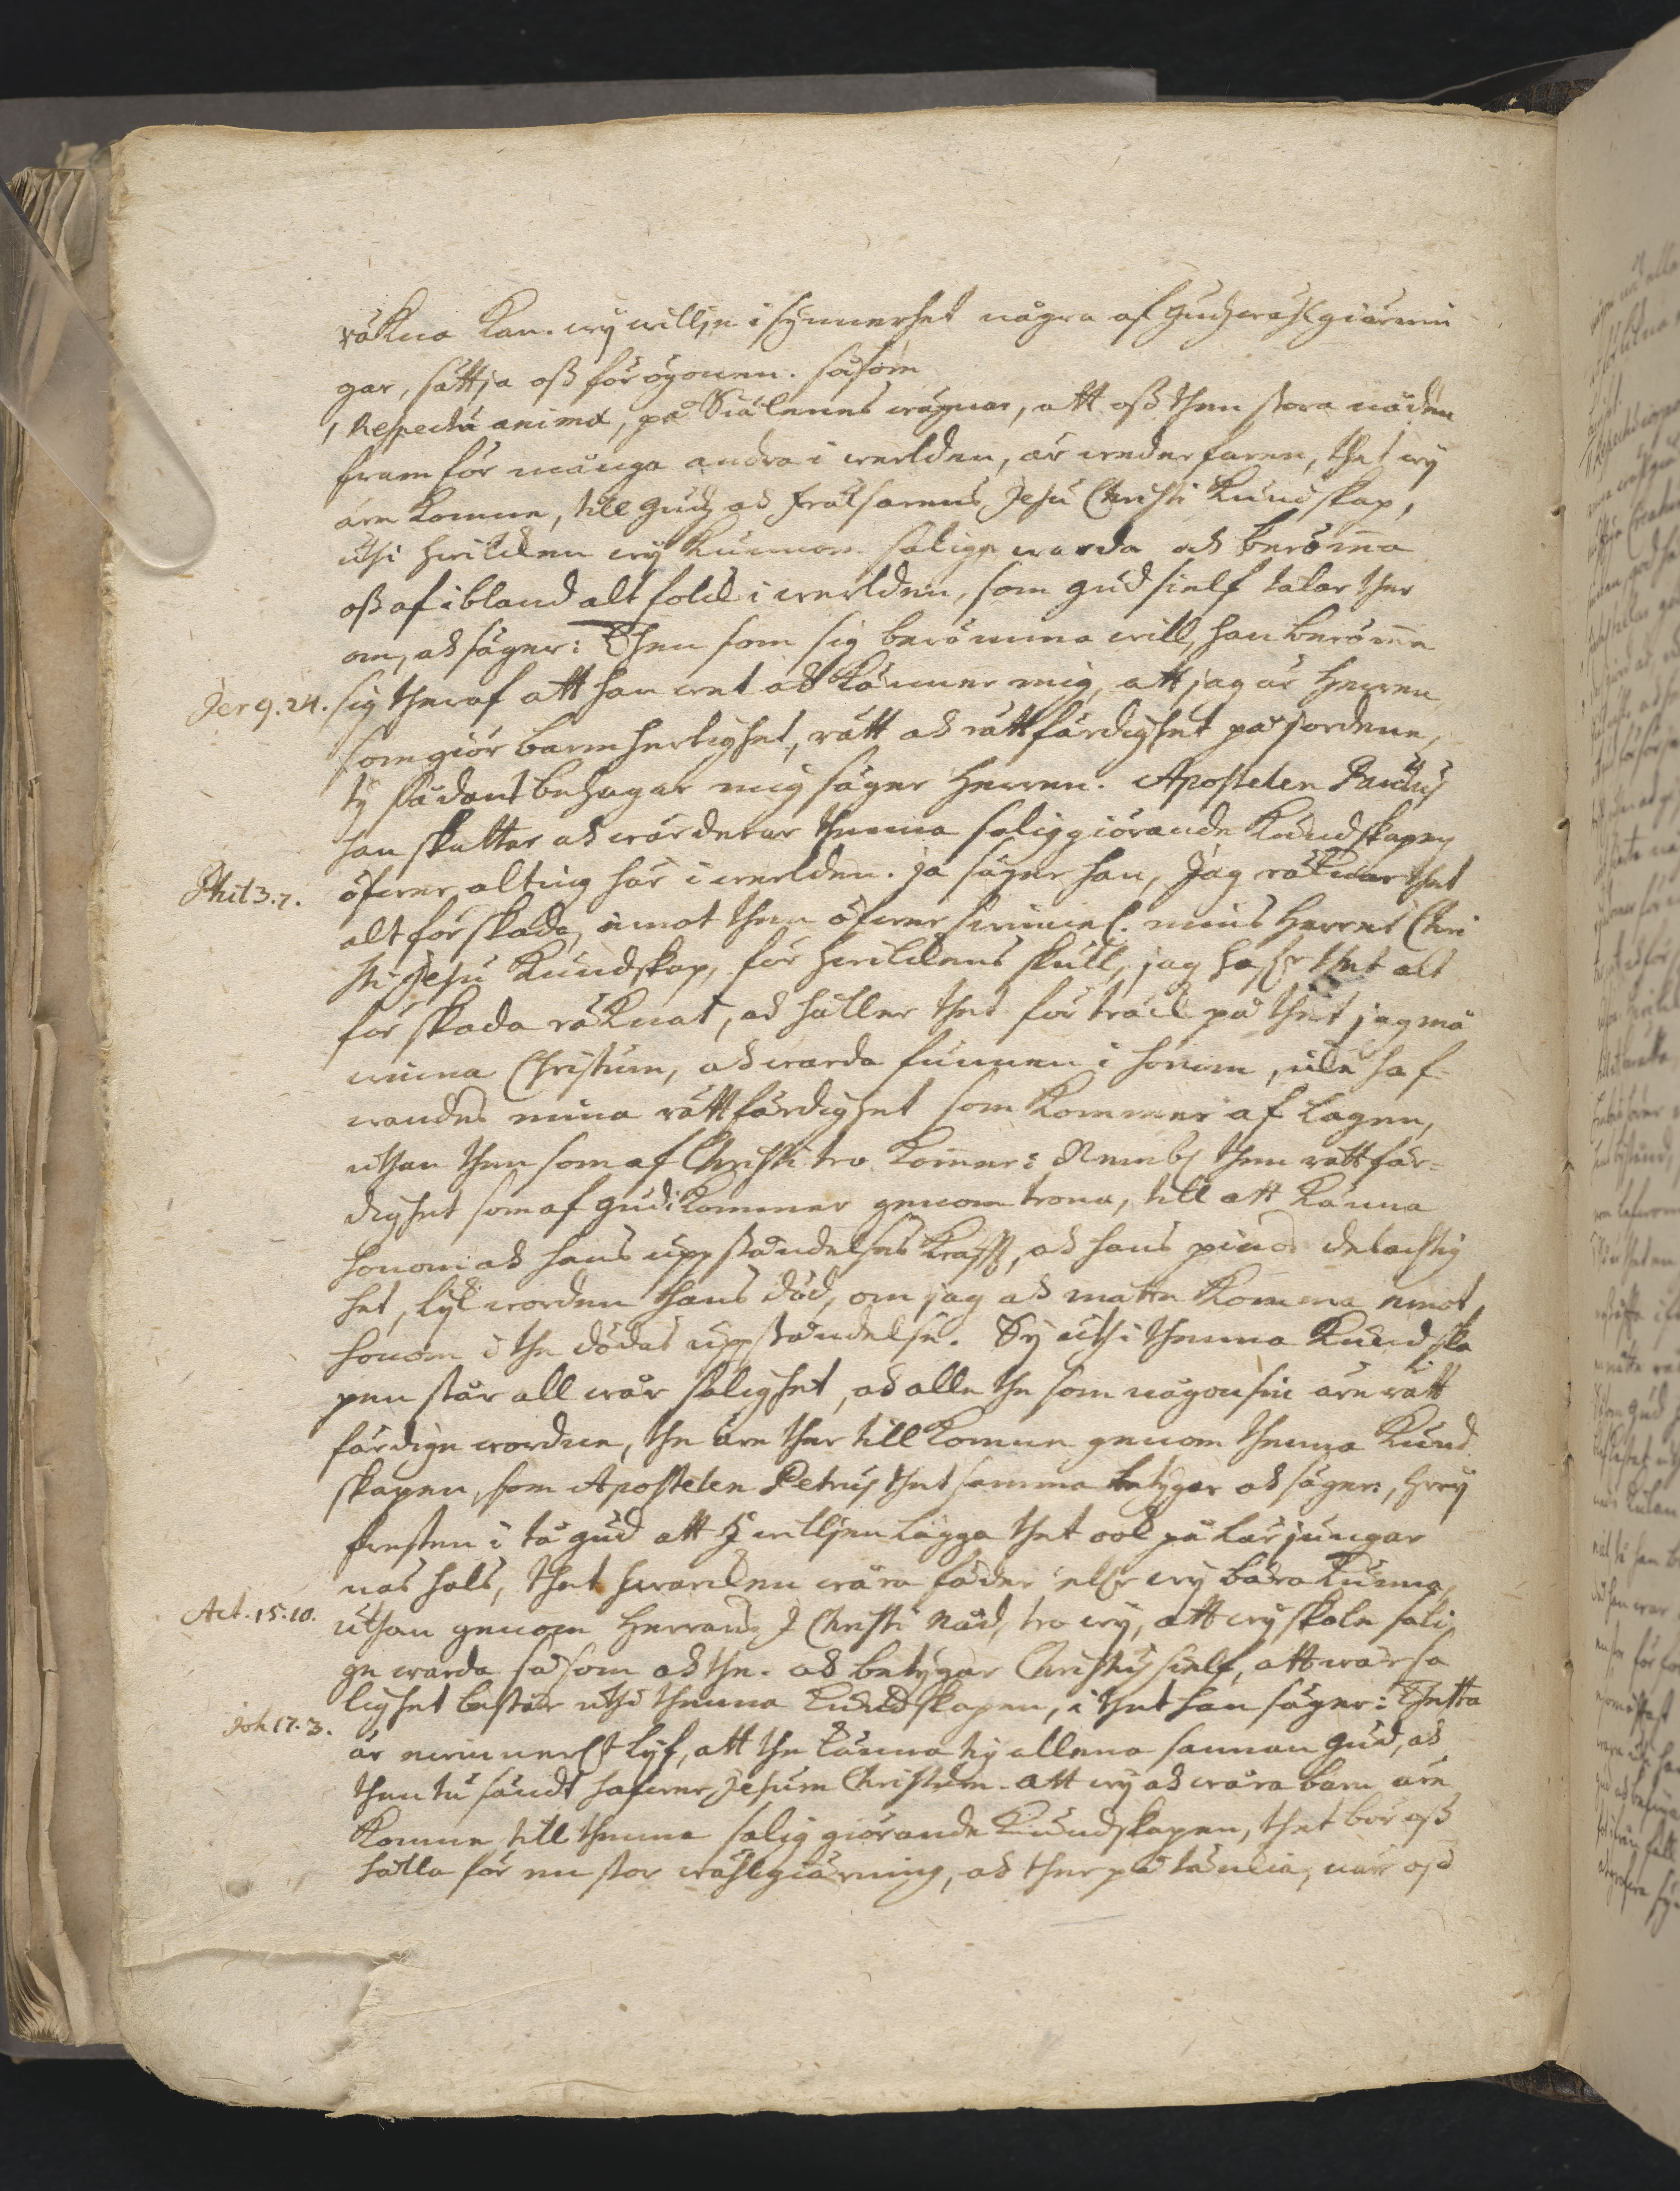 räkna kan. wij willje i synnerhet några af Gudz wählgiärnin
gar, sättja oß för ögonen. såsom
1 Respectu animæ, på Siälenes wägnar, att oß then stora nåden
fram för många andra i werlden, är wederfaren, thet wij
äre komne, till Gudz och frälsarens Jesu Christi Kundskap,
uthi hwilken wij kunnom salige warda och berömma
oß af ibland alt folck i werlden, som Gud sielf talar ther
om, och säger: Then som sig berömma will, han berömme
Jer 9. 24. sig theraf att han wet och känner mig, att jag är Herren
som giör barmhertighet, rätt och rättfärdighet på jordene,
ty sådant behagar mig säger Herren. Apostelen Paulus
han skattar och wärderar thenna saliggiörande Kundskapen
Phil 3. 7. öfwer alting här i werlden. ja säger han, Jag räknar thet
alt för skada, emot then öfwer swinnel. mins Herres Chri
sti Jesu Kundskap, för hwilkens skull, jag hafr thet alt
för skada räknat, och håller thet för träck på thet jag må
winna Christum, och warda funnen i honom, icke haf-
wandes mina rättfärdighet som kommer af lagen,
uthan then som af Christi tro kommer: Nembl then rättfär-
dighet som af Gudi kommer genom trona, till att känna
honom och hans uppståndelses krafft, och hans pinos delachtig
het, lijk worden hans död, om jag och måtte komma emot
honom i the dödas uppståndelse. Ty uthi thenna Kundska
pen står all wår salighet, och alle the som någonsin äre rätt
färdige wordne, the äre ther till komne genom thenna Kund
skapen, som Apostelen Petrus thet samma betygar och säger, Hwij
fresten i tå Gud att I willjen läggia thet ook på Lärjungar
nas hals, thet hwarcken wåra fäder eller wij bära kunna,
Act. 15. 10. uthan genom Herrans J Christi Nåd, tro wij, att wij skole sali
ge warda såsom och the. och betygar Christus sielf, att wår sa
lighet består uthi thenna Kundskapen, i thet han säger: Thetta
Joh 17. 3. är ewinnerl. Lijf, att the känna tig allena sannan Gud, och
then tu sändt hafwer, Jesum Christum. att wij och wåra barn äre
komne till thenna salig giörande Kundskapen, thet bör oß
hålla för en stor wählgiärning, och ther på täncka, när oß